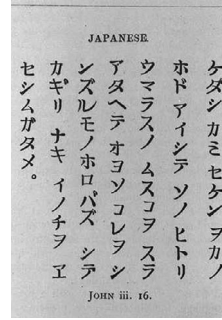 JAPANESE.
ケダシ カミ セケン ヲ カノ
ホド アイシテ ソノ ヒトリ
ウマラスノ ムスコヲ スラ
アタヘテ オヨソ コレヲ シ
ンズルモノホロパズ シテ
カギリ ナキ イノチヲ ヱ
セシムガタメ。
JOHN iii. 16.